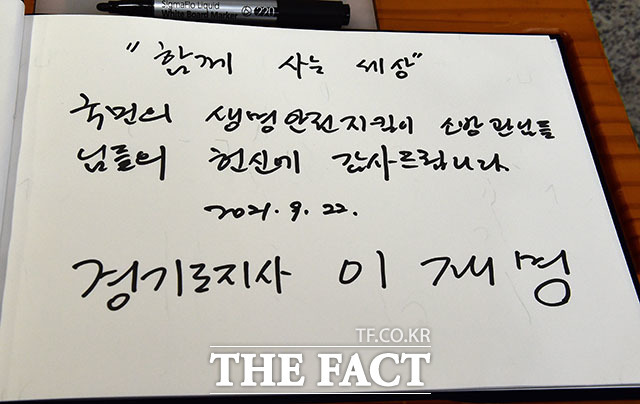 SigmaFlo Liquid
White Board Marker
¥220
"함께 사는 세상"
국민의 생명안전지킴이 소방관님들
님들의 헌신에 감사드립니다.
2021. 9. 22.
경기도지사 이 재 명
TF.CO.KR
THE FACT